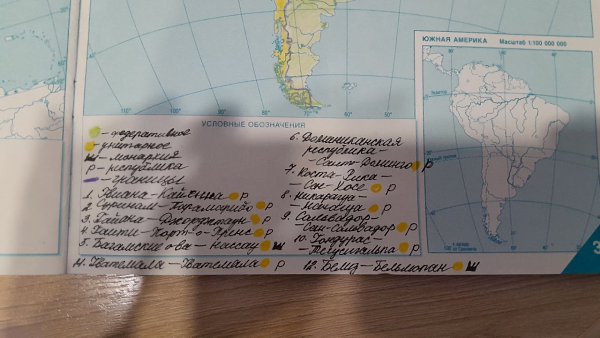 УСЛОВНЫЕ ОБОЗНАЧЕНИЯ
- федеративное
- унитарное
- монархия
Р - республика
- границы
1. Гвиана - Кайенна Р
2. Суринам - Парамарибо Р
3. Гайана - Джорджтаун Р
4. Гаити - Порт-о-Пренс Р
5. Багамские о-ва - Нассау
11. Гватемала - Гватемала Р
6. Доминиканская
республика -
- Санто-Доминго Р
7. Коста-Рика -
- Сан-Хосе Р
8. Никарагуа -
- Манагуа Р
9. Сальвадор -
- Сан-Сальвадор Р
10. Гондурас -
- Тегусигальпа Р
12. Белиз - Бельмопан
ЮЖНАЯ АМЕРИКА Масштаб 1:100 000 000
3